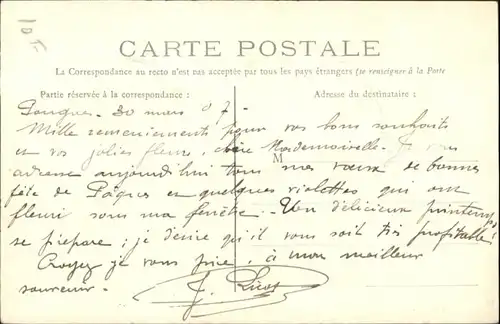 CARTE POSTALE
La Correspondance au recto n'est pas acceptée par tous les pays étrangers (se renseigner à la Poste
Partie réservée à la correspondance :
Adresse du destinataire :
30 mars 07 -
Mille remerciements pour vos bons souhaits
et vos jolies fleurs, chère Mademoiselle. Je vous
M
adresse aujourd'hui tous mes vœux de bonne
fête de Pâques et quelques violettes qui ont
fleuri sous ma fenêtre. - Un délicieux printemps
se prépare ; je désire qu'il vous soit très profitable !
Croyez je vous prie, à mon meilleur
souvenir -